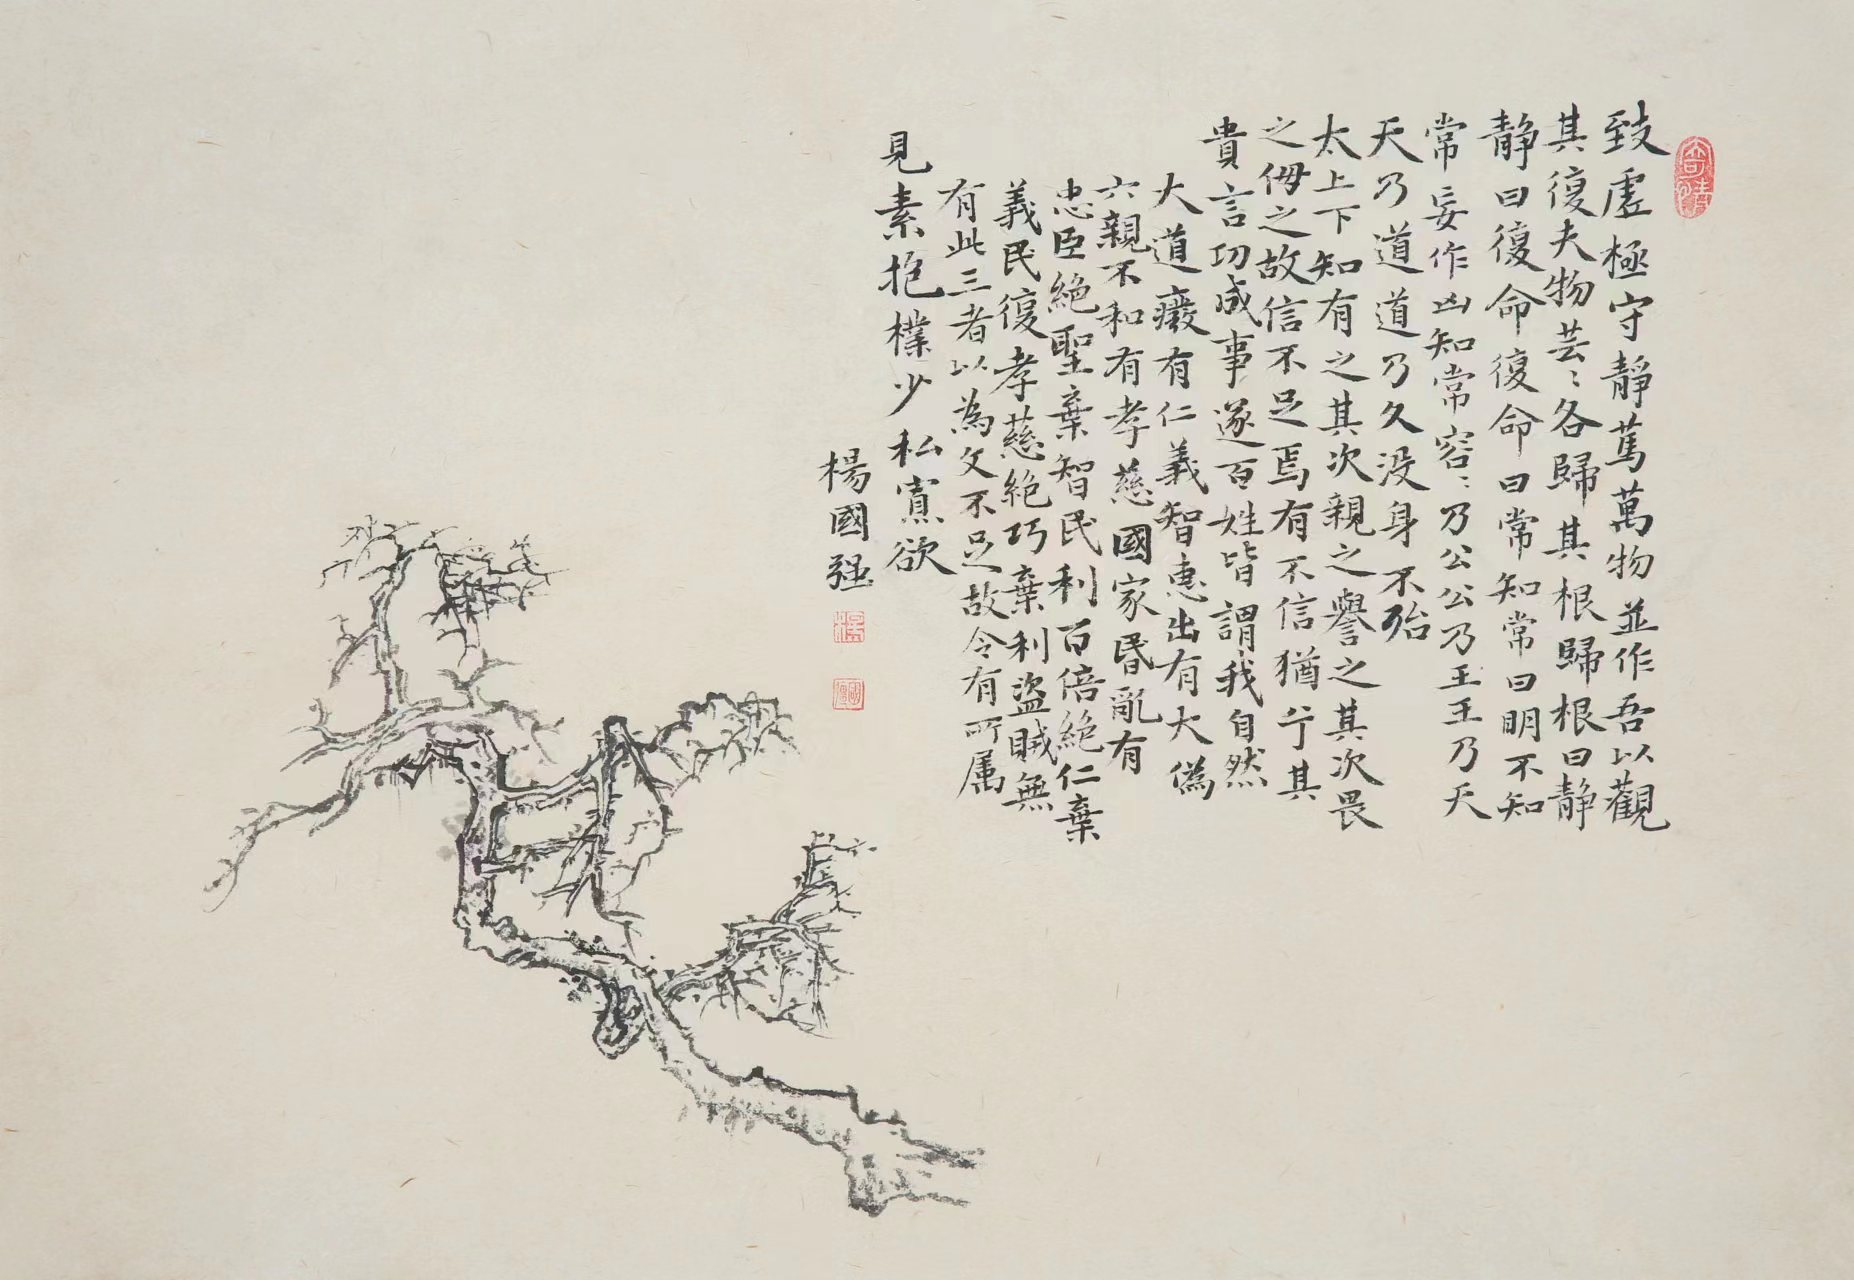 致虛極守靜篤萬物並作吾以觀
其復夫物芸〻各歸其根歸根曰靜
靜曰復命復命曰常知常曰明不知
常妄作凶知常容〻乃公公乃王王乃天
天乃道道乃久没身不殆
太上下知有之其次親之譽之其次畏
之侮之故信不足焉有不信猶兮其
貴言功成事遂百姓皆謂我自然
大道癈有仁義智惠出有大偽
六親不和有孝慈國家昏亂有
忠臣絕聖棄智民利百倍絕仁棄
義民復孝慈絕巧棄利盜賊無
有此三者以為文不足故令有所属
見素抱樸少私寡欲
楊國强